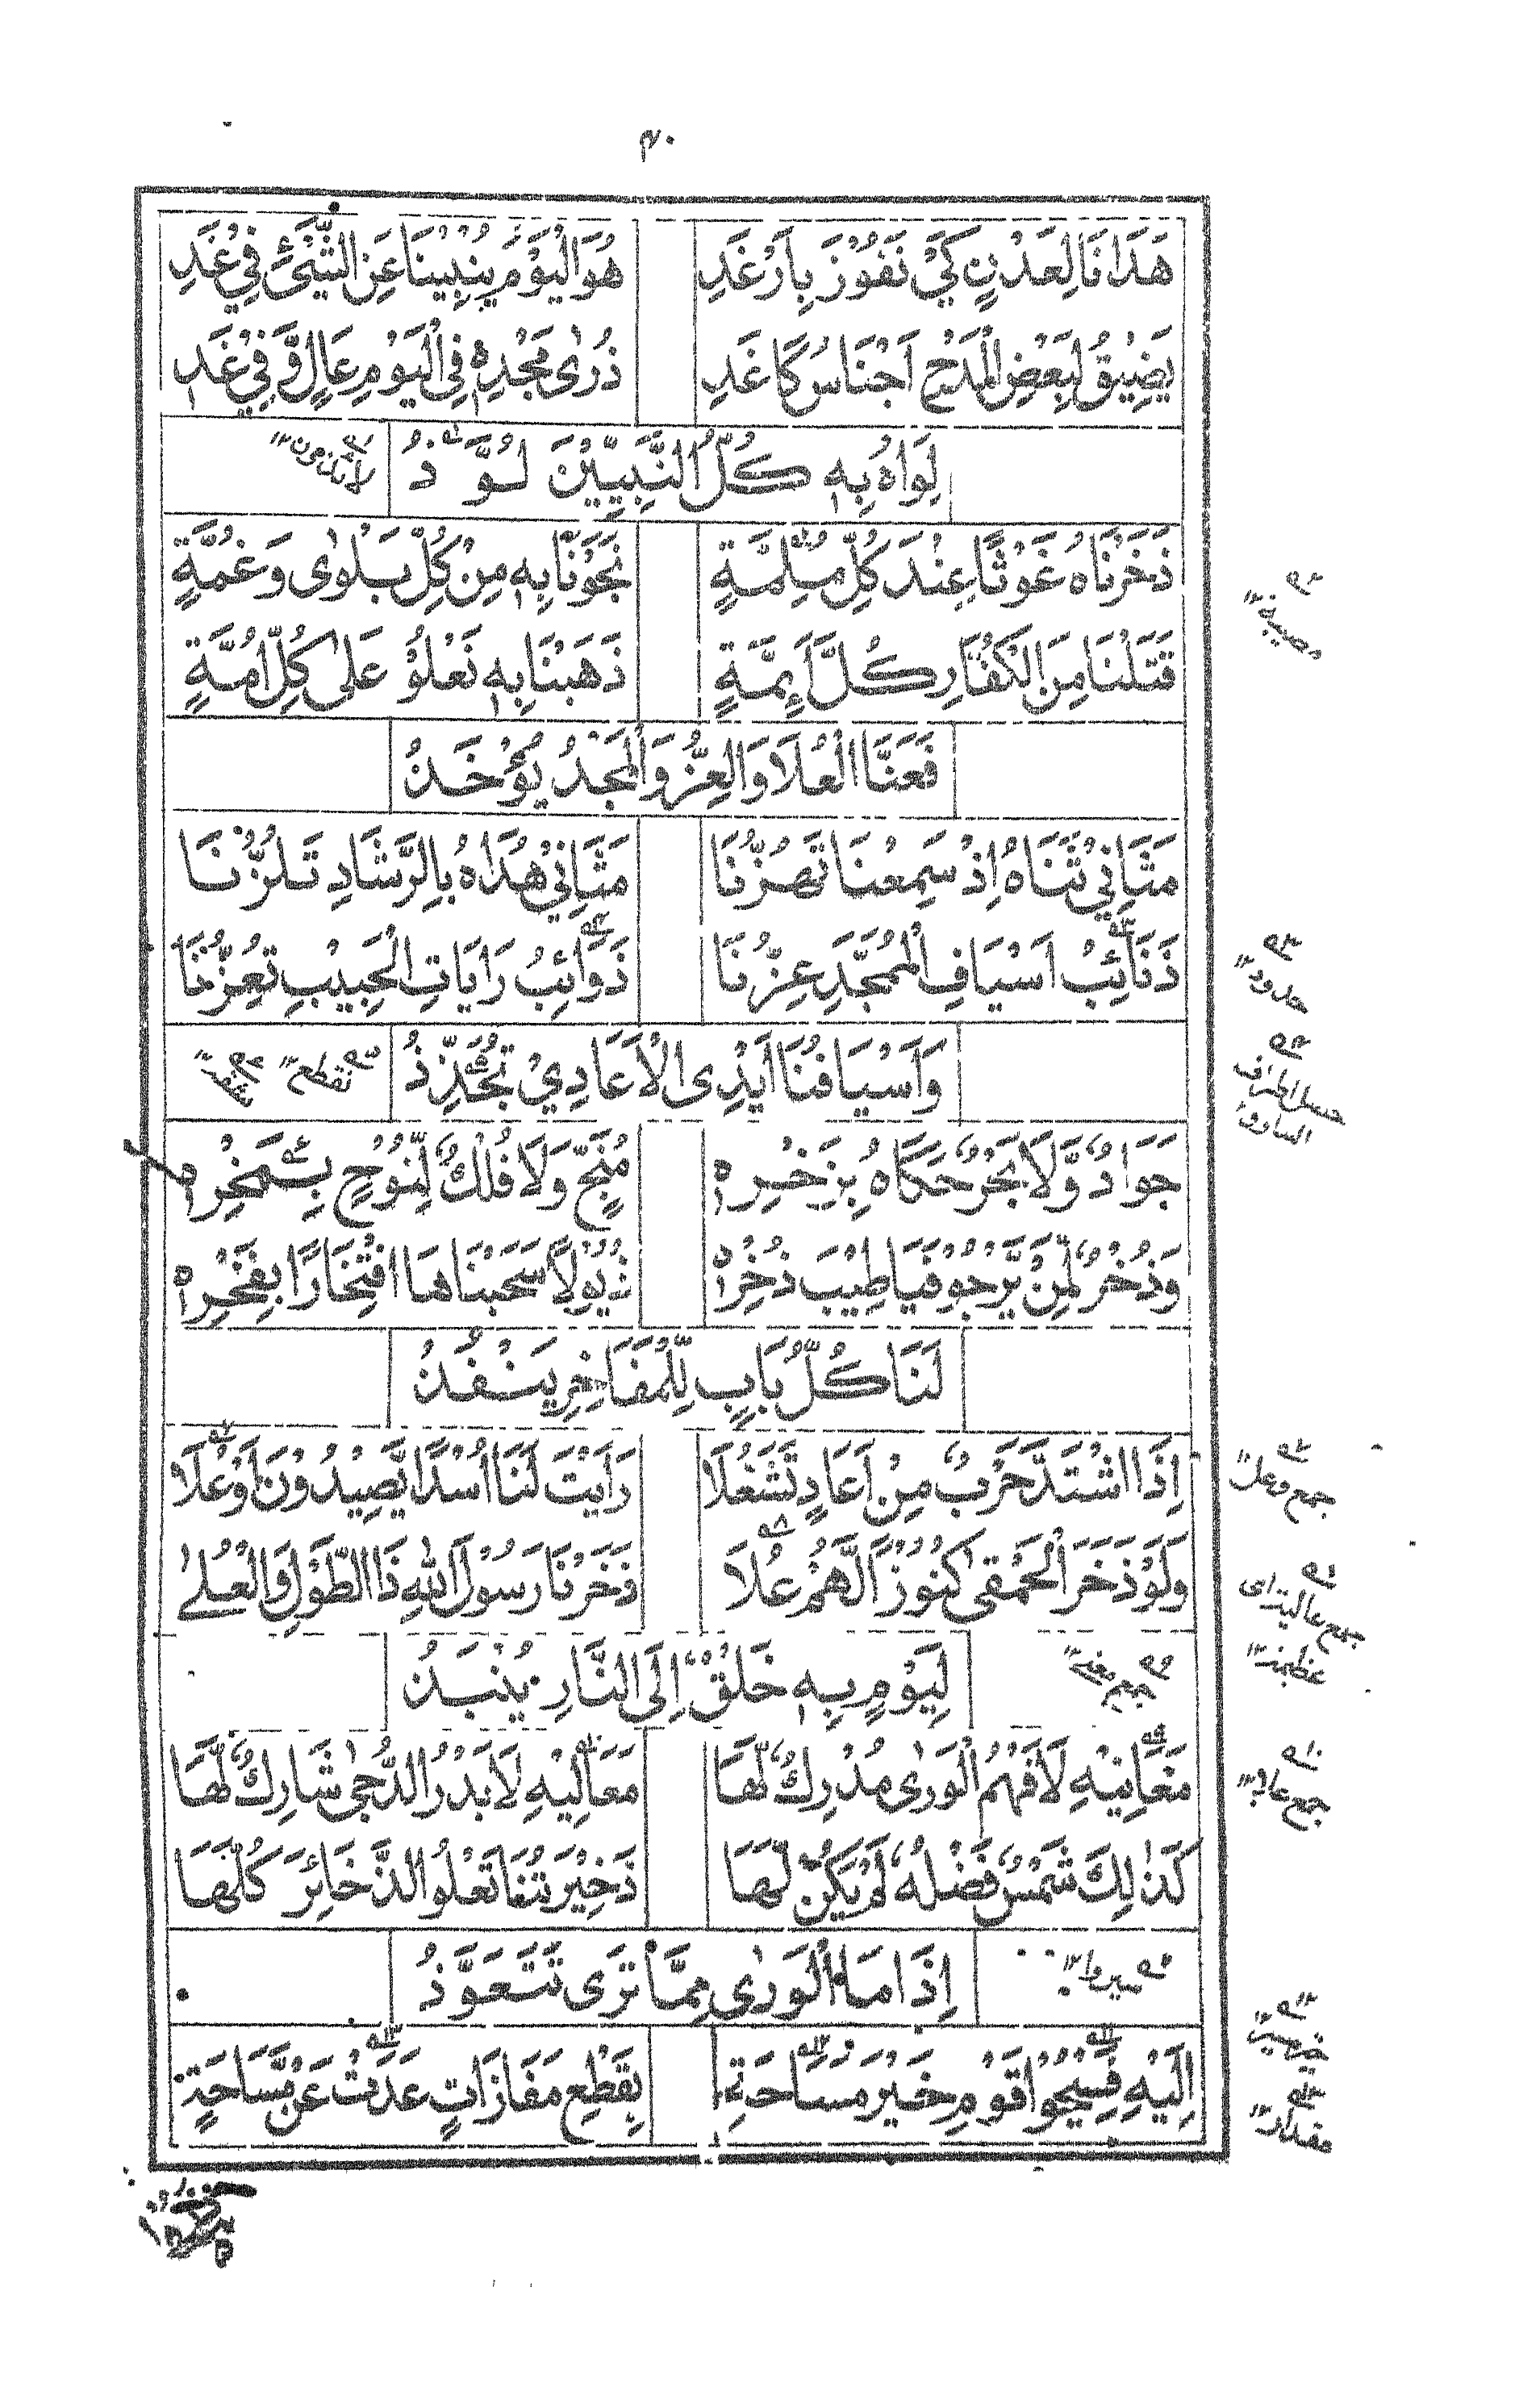 ۴۰
هَدَانَا لِعَدْنٍ كَيْ نَفُوْزَ بِاَرْغَدِ هُوَ الْيَوْمَ يُنْبِيْنَا عَنِ الشَّيْءِ فِيْ غَدِ
يَضِيْقُ لِبَعْضِ الْمَدْحِ اَجْنَاسُ كَاغَدِ ذُرٰى مَجْدِهٖ فِي الْيَوْمِ عَالٍ وَّفِيْ غَدِ
لِوَاهُ بِهٖ كُلُّ النَّبِيِّيْنَ لُوَّذُ
لائذون ١٢
ذَخَرْنَاهُ غَوْثًا عِنْدَ كُلِّ مُلِمَّةٍ نَجَوْنَا بِهٖ مِنْ كُلِّ بَلْوٰى وَغُمَّةٍ
مصيبة ١٢
قَتَلْنَا مِنَ الْكُفَّارِ كُلَّ اَئِمَّةٍ ذَهَبْنَا بِهٖ نَعْلُوْ عَلٰى كُلِّ اُمَّةٍ
فَعَنَّا الْعُلَا وَالْعِزُّ وَالْمَجْدُ يُؤْخَذُ
مَثَانِيْ ثَنَاهُ اِذْ سَمِعْنَا تَهُزُّنَا مَثَانِيْ هُدَاهُ بِالرَّشَادِ تَلُزُّنَا
ذَنَائِبُ اَسْيَافِ الْمُمَجَّدِ عِزُّنَا ذَوَائِبُ رَايَاتِ الْحَبِيْبِ تُعِزُّنَا
حدود ١٢
وَاَسْيَافُنَا اَيْدِى الْاَعَادِيْ تُجَذِّذُ
تقطع ١٢
جَوَادٌ وَّلَا بَحْرٌ حَكَاهُ بِزَخْرِهٖ مُنَجٍّ وَلَا فُلْكٌ لِّنُوْحٍ بِمَخْرِهٖ
وَذُخْرٌ لِّمَنْ يَّرْجُوْ فَيَا طِيْبَ ذُخْرِهٖ ذُيُوْلًا سَحَبْنَاهَا افْتِخَارًا بِفَخْرِهٖ
لَنَا كُلُّ بَابٍ لِّلْمَفَاخِرِ يَنْفُذُ
اِذَا اشْتَدَّ حَرْبٌ مِنْ اَعَادٍ تَشَغُّلَا رَاَيْتَ لَنَا اُسْدًا يَّصِيْدُوْنَ اَوْعُلَا
جمع وعل ١٢
وَلَوْ ذَخَرَ الْحَمْقٰى كُنُوْزًا لَّهُمْ عُلَا ذَخَرْنَا رَسُوْلَ اللّٰهِ ذَا الطَّوْلِ وَالْعُلٰى
جمع عالية اى عظيمة ١٢
لِيَوْمٍ بِهٖ خَلْقٌ اِلَى النَّارِ يُنْبَذُ
مَغَانِيْهِ لَا فَهْمُ الْوَرٰى مُدْرِكٌ لَّهَا مَعَالِيْهِ لَا بَدْرُ الدُّجٰى شَارِكٌ لَّهَا
كَذٰلِكَ شَمْسٌ فَضْلُهٗ لَمْ يَكُنْ لَّهَا ذَخِيْرَتُنَا تَعْلُو الذَّخَائِرَ كُلَّهَا
اِذَا مَا الْوَرٰى مِمَّا تَرٰى تَتَعَوَّذُ
سيروا ١٢
اِلَيْهِ فَسِيْحُوْا قَوْمِ خَيْرَ مَسَاحَةٍ بِقَطْعِ مَفَازَاتٍ عَدَتْ عَنْ مَّسَاحَةٍ
مقدار ١٢